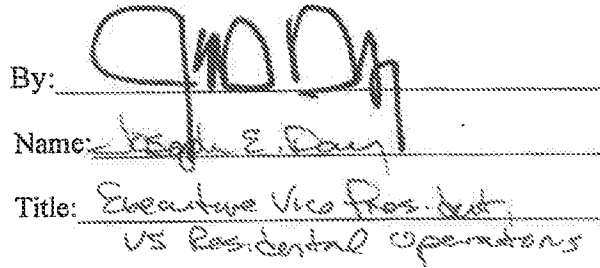 By:
Name: Joseph E. Dorey
Title: Executive Vice President,
US Residential Operations